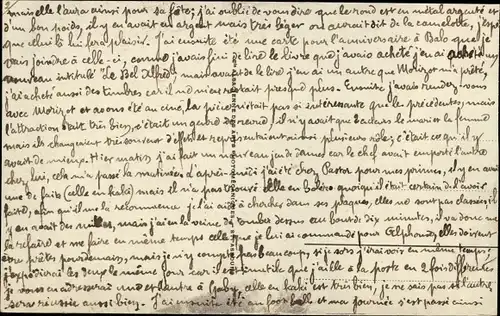 mais elle l'aura ainsi pour sa fête; j'ai oublié de vous dire que le rond est en métal argenté et
d'un bon poids, il y en avait en argent mais très léger on aurait dit de la camelotte, j'espère
que celui là lui fera plaisir. J'ai ensuite été une carte pour l'anniversaire à Balo que je
vais joindre à celle-ci, comme j'avais fini de lire le livre que j'avais acheté j'en ai acheté un
nouveau intitulé "Le Bel Alfred" mais avant de le lire j'en ai un autre que Morizot m'a prêté,
j'ai acheté aussi des timbres car il ne m'en restait presque plus. Ensuite j'avais rendez-vous
avec Morizot et avons été au ciné, la pièce n'était pas si intéressante que la précédente, mais
l'attraction était très bien, c'était un genre de revue, il n'y avait que 2 acteurs le mari et la femme
mais ils changeaient très souvent d'effets et représentaient ainsi plusieurs rôles, c'était ce qu'il y
avait de mieux. Hier matin j'ai fait un nouveau jeu de dames car le chef avait emporté l'autre
chez lui, cela m'a passé la matinée, d'après-midi j'ai été chez Castor pour mes primes, il y en avait
une de faite (celle en kaki) mais il n'a pas trouvé celle en Boléro quoiqu'il était certain de l'avoir
faite, afin qu'il ne la recommence je l'ai aidé à chercher dans ses plaques, elles ne sont pas classées, et
il y en avait des milles, mais j'ai eu la veine de tomber dessus au bout de dix minutes, il va donc
la refaire et me faire en même temps celle que je lui ai commandé pour Alphonse, elles doivent
être prêtes pour demain, mais je n'y compte pas beaucoup, si je sors j'irai voir en même temps
j'expédierai les deux le même jour car il est inutile que j'aille à la poste en 2 fois différentes
je vous en adresserai une et l'autre à Gaby, celle en kaki est très bien, je ne sais pas si l'autre
sera réussie aussi bien. J'ai ensuite été au foot-ball et ma journée s'est passé ainsi